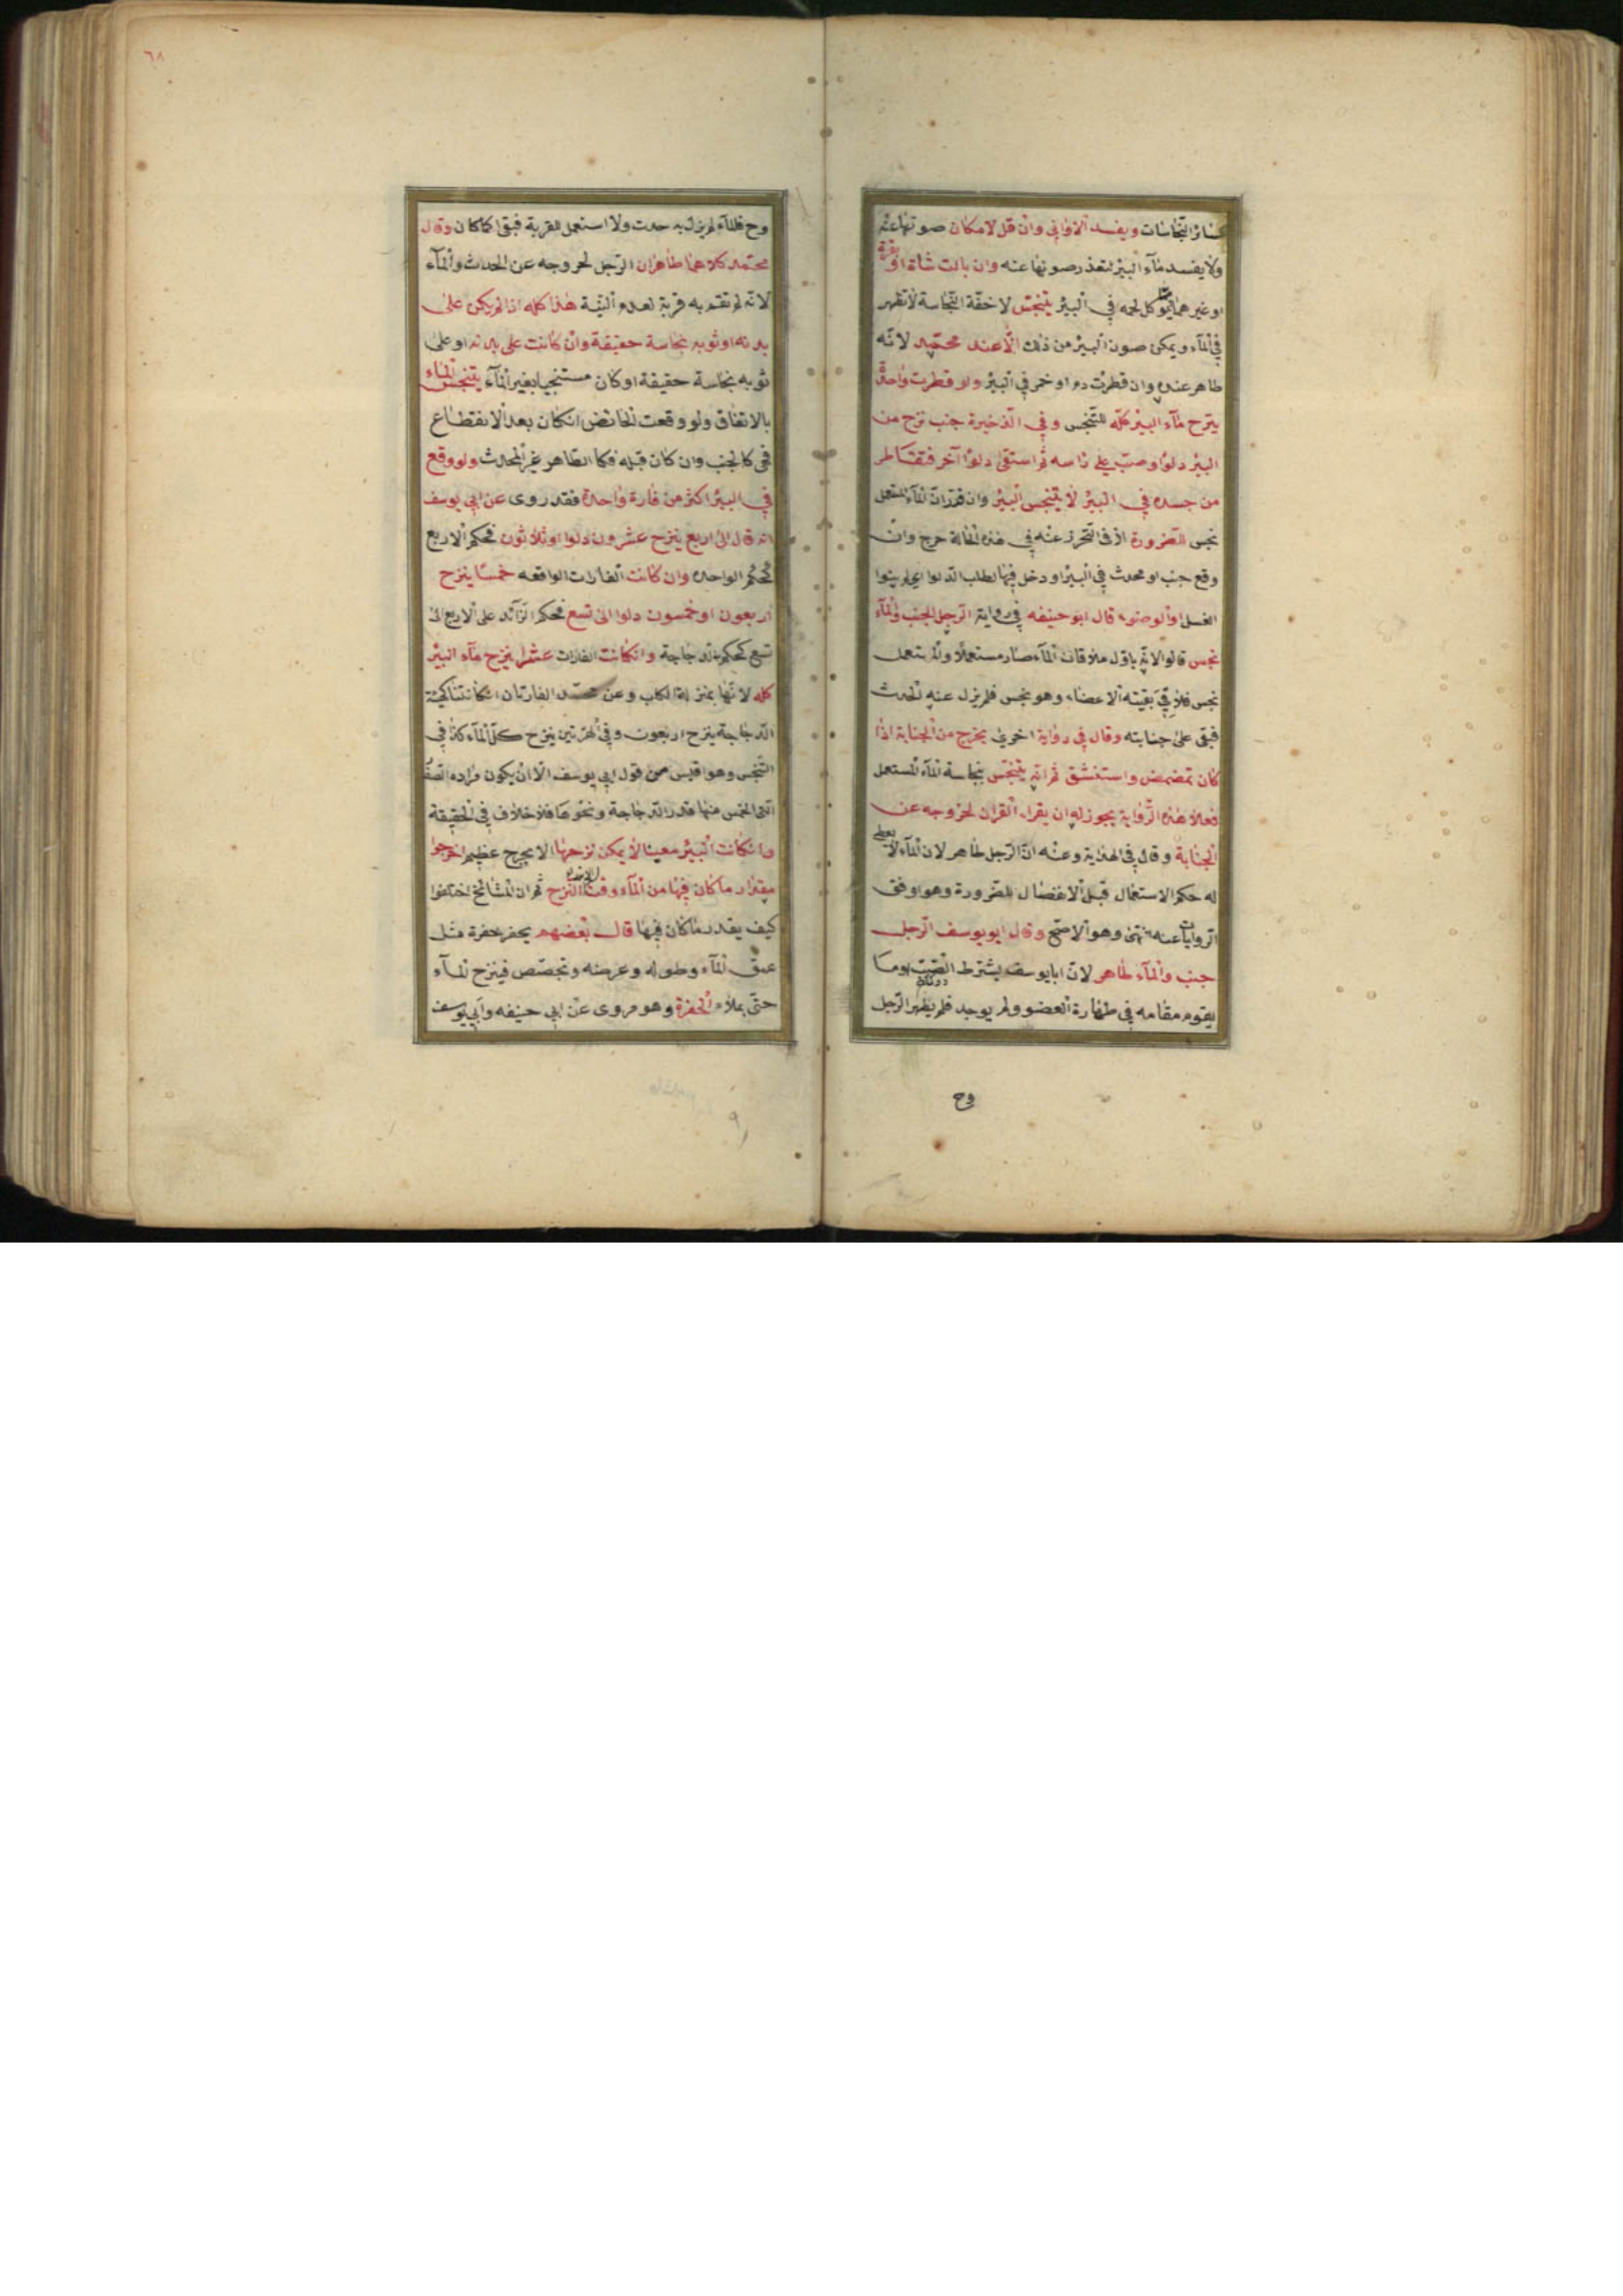 كسائر النجاسات ويفسد الاواني وان قل لامكان صونها عنه
ولا يفسد ماء البير لتعذر صونها عنه وان بالت شاة او بقرة
او غيرهما مما يؤكل لحمه في البير يتنجس لا خفة النجاسة لا تظهر
في الماء ويمكن صون البير من ذلك الا عند محمد لانه
طاهر عنده وان قطرت دم او خمر في البير ولو قطرت واحدة
ينزح ماء البير كله للتنجس وفي الذخيرة جنب نزح من
البير دلوا وصب على راسه ثم استقى دلوا آخر فتقاطر
من جسده في البير لا يتنجس البير وان قدر ان الماء المستعمل
نجس للضرورة اذ في التحرز عنه في هذه الحالة حرج وان
وقع جنب او محدث في البير او دخل فيها لطلب الدلو اي لم ينوا
الغسل او الوضوء قال ابو حنيفه في رواية الرجل الجنب والماء
نجس قالوا لانه باول ملاقاة الماء صار مستعملا والمستعمل
نجس فلاقى بقيته الاعضاء وهو نجس فلم يزل عنه الحدث
فبقى على جنابته وقال في رواية اخرى يخرج من الجنابة اذا
كان تمضمض واستنشق ثم انه يتنجس بنجاسة الماء المستعمل
فعلى هذه الرواية يجوز له ان يقراء القران لخروجه عن
الجنابة وقال في الهداية وعنه ان الرجل طاهر لان الماء لا يعطى
له حكم الاستعمال قبل الانفصال للضرورة وهو اوفق
الروايات عنه وهو الاصح وقال ابو يوسف الرجل
جنب والماء طاهر لان ابا يوسف يشترط الصب وما
يقوم مقامه في طهارة العضو ولم يوجد فلم يطهر الرجل
وح
٦٨
وح فالماء لم يزل به حدث ولا استعمل للقربة فبقى كما كان وقال
محمد كلاهما طاهران الرجل لخروجه عن الحدث والماء
لانه لم تقم به قربة لعدم النية هذا كله اذا لم يكن على
بدنه او ثوبه نجاسة حقيقة وان كانت على بدنه او على
ثوبه نجاسة حقيقة او كان مستنجيا بغير الماء يتنجس الماء
بالاتفاق ولو وقعت الحائض انكان بعد الانقطاع
فهى كالجنب وان كان قبله فكا الطاهر غير المحدث ولو وقع
في البير اكثر من فارة واحدة فقد روى عن ابي يوسف
انه قال الى اربع ينزح عشرون دلوا او ثلاثون فحكم الاربع
كحكم الواحده وان كانت الفارات الواقعه خمسا ينزح
اربعون او خمسون دلوا الى تسع فحكم الزائد على الاربع الى
تسع كحكم الدجاجة وانكانت الفارات عشرا ينزح ماء البير
كله لانها بمنزلة الكلب وعن محمد الفارتان انكانتا كهيئة
الدجاجة ينزح اربعون وفي الهرتين ينزح كل الماء كذا في
التجنس وهو اقيس من قول ابي يوسف الا ان يكون مراده الصغار
التي الخمس منها قدر الدجاجة ونحوها فلا خلاف في الحقيقة
وانكانت البير معينا لا يمكن نزحها الا بحرج عظيم اخرجوا
مقدار ما كان فيها من الماء وقت ابتداء النزح ثم ان المشائخ اختلفوا
كيف يقدر ما كان فيها قال بعضهم يحفر حفرة مثل
عمق الماء وطوله وعرضه وتجصص فينزح الماء
حتى يملاء الحفرة وهو مروى عن ابي حنيفه وابي يوسف